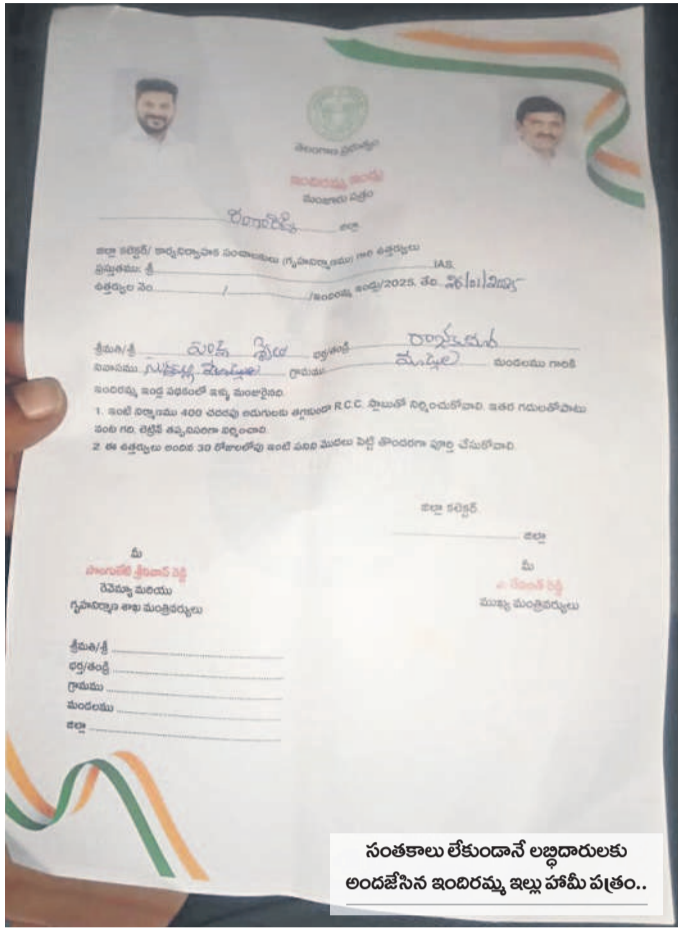 తెలంగాణ ప్రభుత్వం
ఇందిరమ్మ ఇండ్లు
మంజూరు పత్రం
రంగారెడ్డి జిల్లా
జిల్లా కలెక్టర్/ కార్యనిర్వాహక సంచాలకులు (గృహనిర్మాణము) గారి ఉత్తర్వులు
ప్రస్తుతము: శ్రీ IAS.
ఉత్తర్వుల నెం. / /ఇందిరమ్మ ఇండ్లు/2025, తేది. 26/01/2025
శ్రీమతి/శ్రీ శ్వేత భర్త/తండ్రి రాజ్‌కుమార్
నివాసము గ్రామము మండలము గారికి
ఇందిరమ్మ ఇండ్ల పథకంలో ఇళ్ళు మంజూరైనది.
1. ఇంటి నిర్మాణము 400 చదరపు అడుగులకు తగ్గకుండా R.C.C. స్లాబుతో నిర్మించుకోవాలి. ఇతర గదులతోపాటు
వంట గది, లెట్రిన్ తప్పనిసరిగా నిర్మించాలి.
2. ఈ ఉత్తర్వులు అందిన 30 రోజులలోపు ఇంటి పనిని మొదలు పెట్టి తొందరగా పూర్తి చేసుకోవాలి.
జిల్లా కలెక్టర్.
జిల్లా
మీ
పొంగులేటి శ్రీనివాస్ రెడ్డి
రెవెన్యూ మరియు
గృహనిర్మాణ శాఖ మంత్రివర్యులు
మీ
ఎ. రేవంత్ రెడ్డి
ముఖ్య మంత్రివర్యులు
శ్రీమతి/శ్రీ
భర్త/తండ్రి
గ్రామము
మండలము
జిల్లా
సంతకాలు లేకుండానే లబ్ధిదారులకు
అందజేసిన ఇందిరమ్మ ఇల్లు హామీ పత్రం..